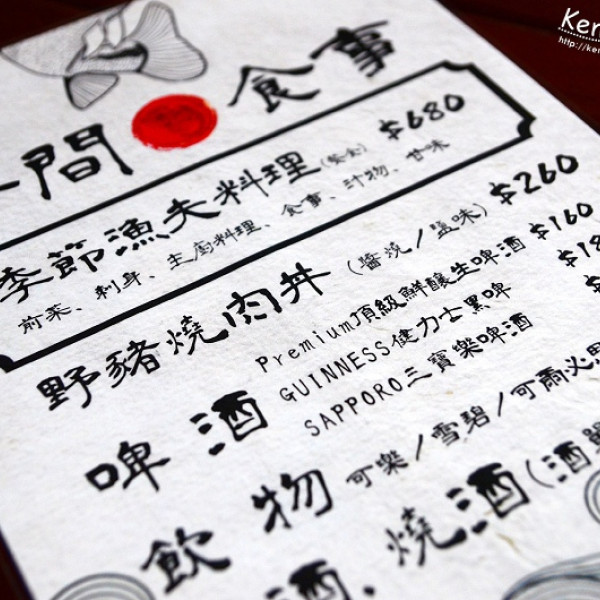 Ker
http://ke
間 食事
季節漁夫料理(餐套) $680
前菜、刺身、主廚料理、食事、汁物、甘味
野豬燒肉丼 (醬燒/鹽味) $260
啤酒 Premium頂級鮮釀生啤酒 $160
GUINNESS健力士黑啤 $18
SAPPORO三寶樂啤酒 $
飲物 可樂/雪碧/可爾必思
酒、燒酒(酒單